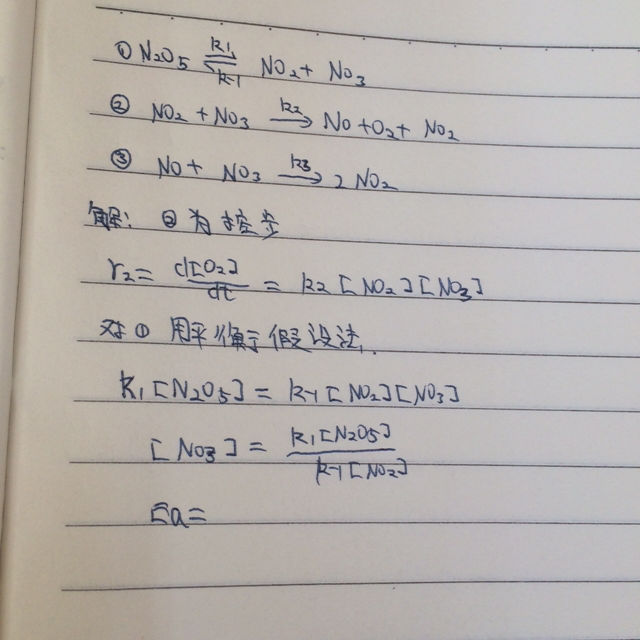 ① N2O5 ⇌ NO2 + NO3 k1 k-1
② NO2 + NO3 →(k2) NO + O2 + NO2
③ NO + NO3 →(k3) 2NO2
解: ②为控步
r2 = d[O2]/dt = k2[NO2][NO3]
对① 用平衡假设法.
k1[N2O5] = k-1[NO2][NO3]
[NO3] = k1[N2O5]/k-1[NO2]
Ea=